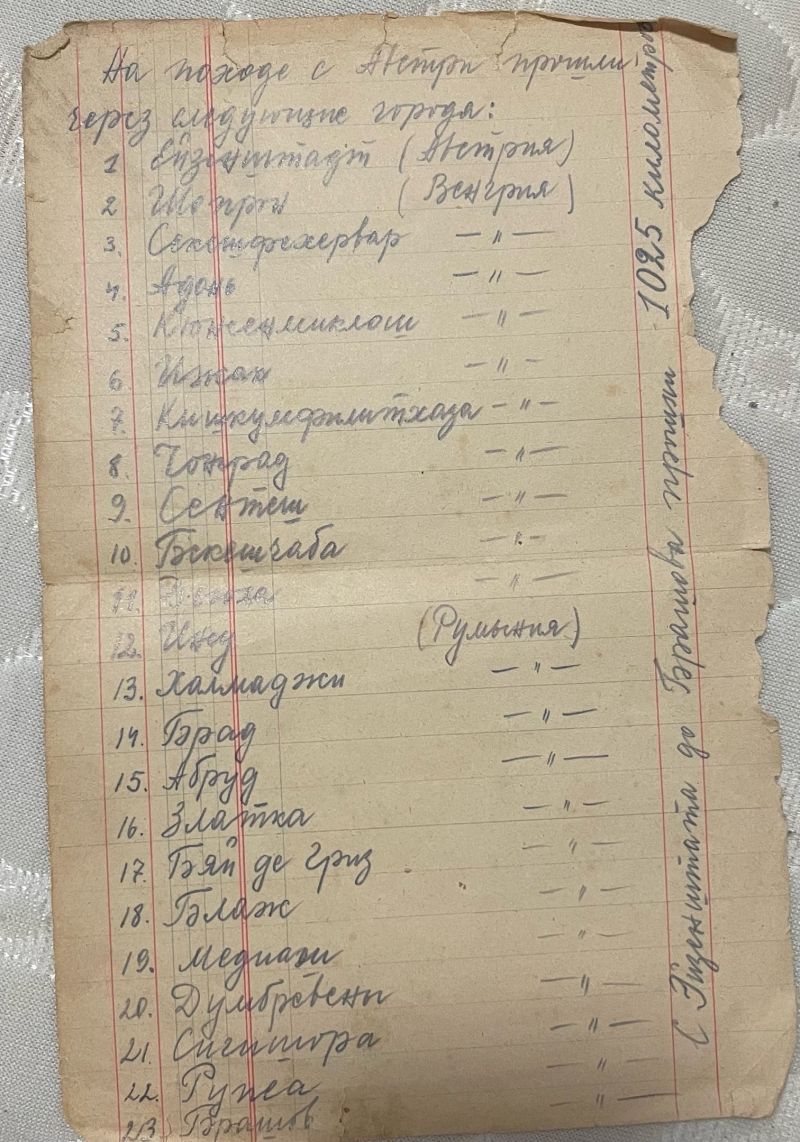 На походе с Австри прошли
через следующие города:
1 Ейзенштадт (Австрия)
2 Шопрон (Венгрия)
3. Секешфехервар — „ —
4. Адонь — „ —
5. Кюнсенмиклош — „ —
6 Ижак — „ —
7. Кишкумфилитхаза — „ —
8. Чонрад — „ —
9. Сентеш — „ —
10. Бэкешчаба — „ —
11. — „ —
12. Ину (Румыния)
13. Халмаджи — „ —
14. Брад — „ —
15. Абруд — „ —
16. Златка — „ —
17. Бяй де Гриз — „ —
18. Блаж — „ —
19. Медиаш — „ —
20. Думбревены — „ —
21. Сигишора — „ —
22. Рупеа — „ —
23 Брашов — „ —
С Эйзенштата до Брашова прошли 1025 километров